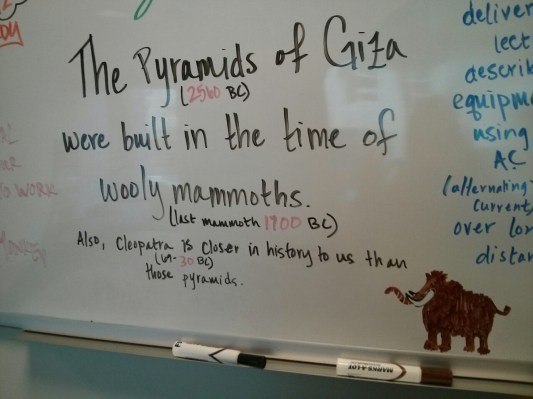 The Pyramids of Giza
(2560 BC)
were built in the time of
wooly mammoths.
(last mammoth 1700 BC)
Also, Cleopatra is closer in history to us than
(69-30 BC)
those pyramids.
deliver
lect
describ
equipm
using
AC
(alternating
current)
over lon
distan
TO WORK
MONEY
MARKS-A-LOT